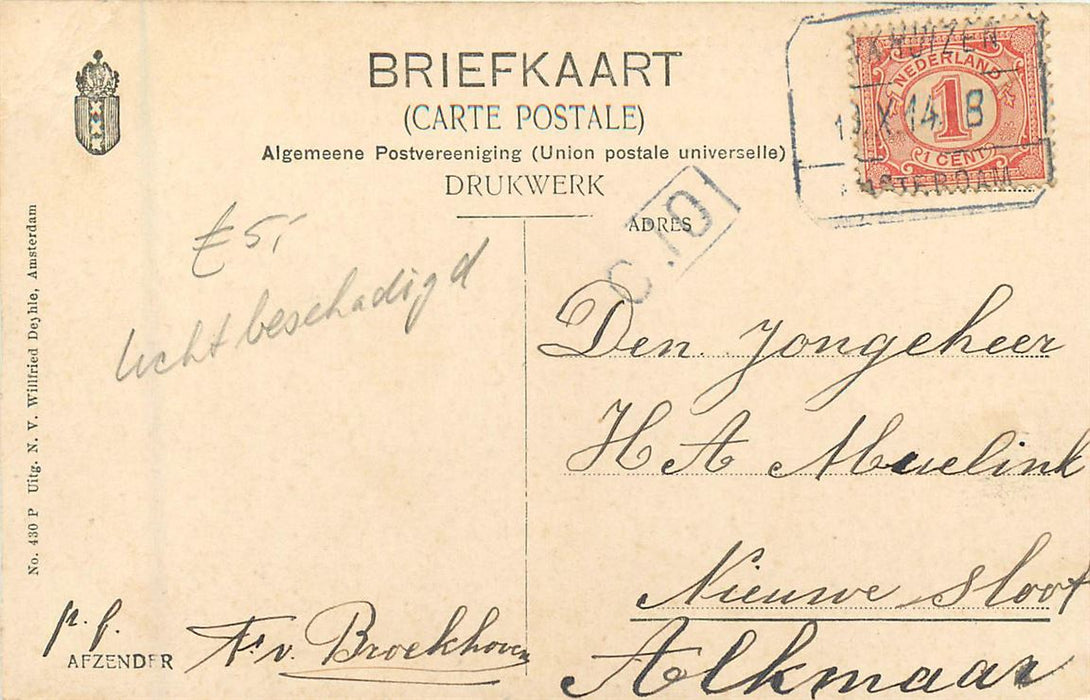 BRIEFKAART
(CARTE POSTALE)
Algemeene Postvereeniging (Union postale universelle)
DRUKWERK
NEDERLAND
1
1 CENT
KHUIZEN
X 14 8
STERDAM
£5,-
licht beschadigd
No. 430 P Uitg. N. V. Willfried Deyhle, Amsterdam
C 10
ADRES
Den Jongeheer
H A Abuelink
Nieuwe sloot
Alkmaar
p. f.
AFZENDER
F. v. Broekhoven